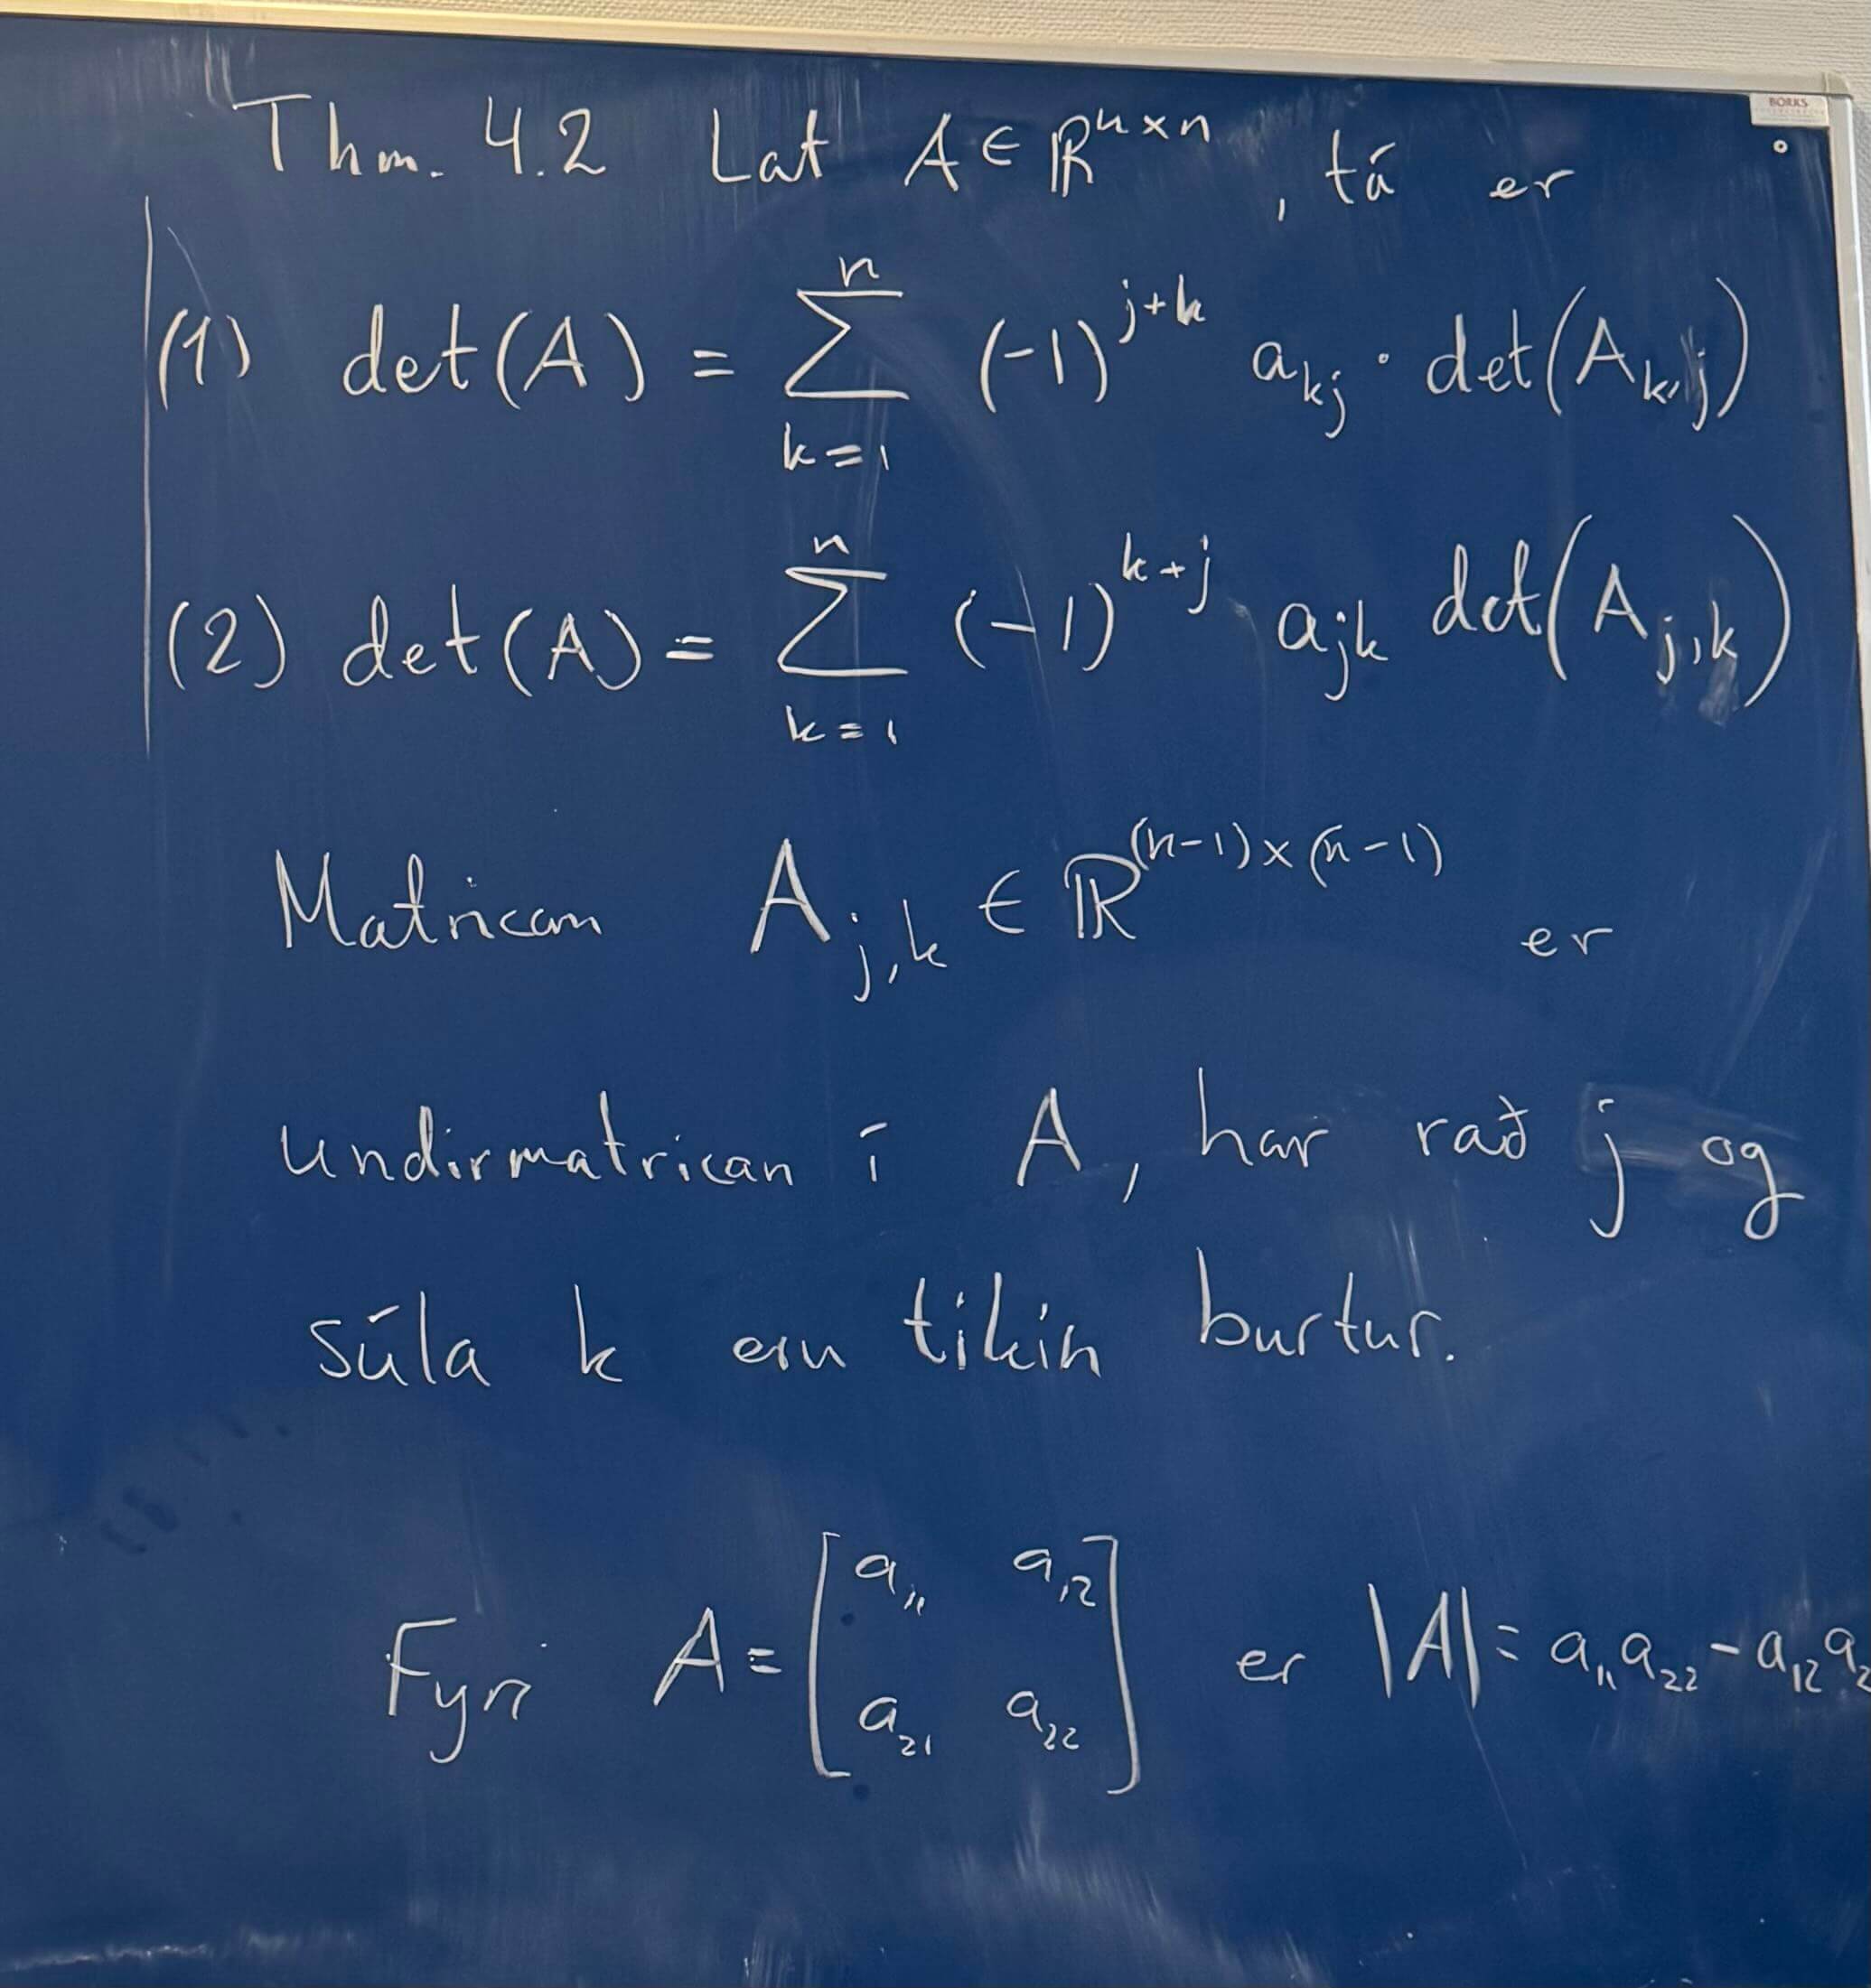 BORKS
Thm. 4.2 Lat A ∈ ℝ^{n×n}, tá er
(1) det(A) = \sum_{k=1}^{n} (-1)^{j+k} a_{kj} · det(A_{k,j})
(2) det(A) = \sum_{k=1}^{n} (-1)^{k+j} a_{jk} det(A_{j,k})
Matrican A_{j,k} ∈ ℝ^{(n-1)×(n-1)} er
undirmatrican í A, har rað j og
súla k eru tikin burtur.
Fyri A = \begin{bmatrix} a_{11} & a_{12} \\ a_{21} & a_{22} \end{bmatrix} er |A| = a_{11}a_{22} - a_{12}a_{2